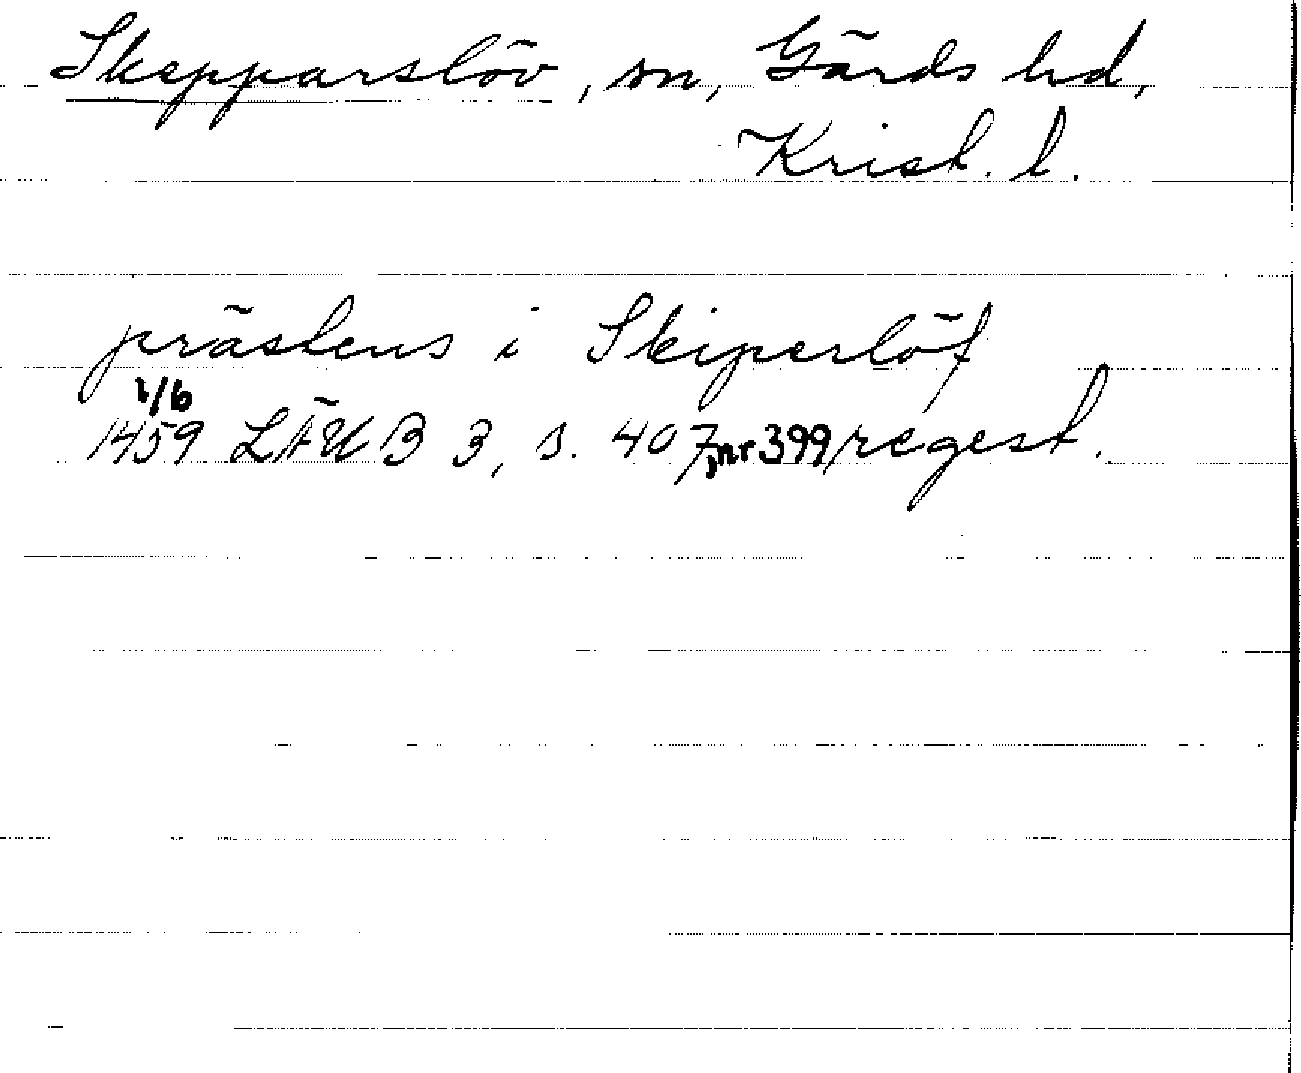 Skepparslöv, sn, Gärds hd,
Krist. l.
prästens i Skiperlöf
1/6
1459 LÄUB 3, s. 407, nr 399, regest.